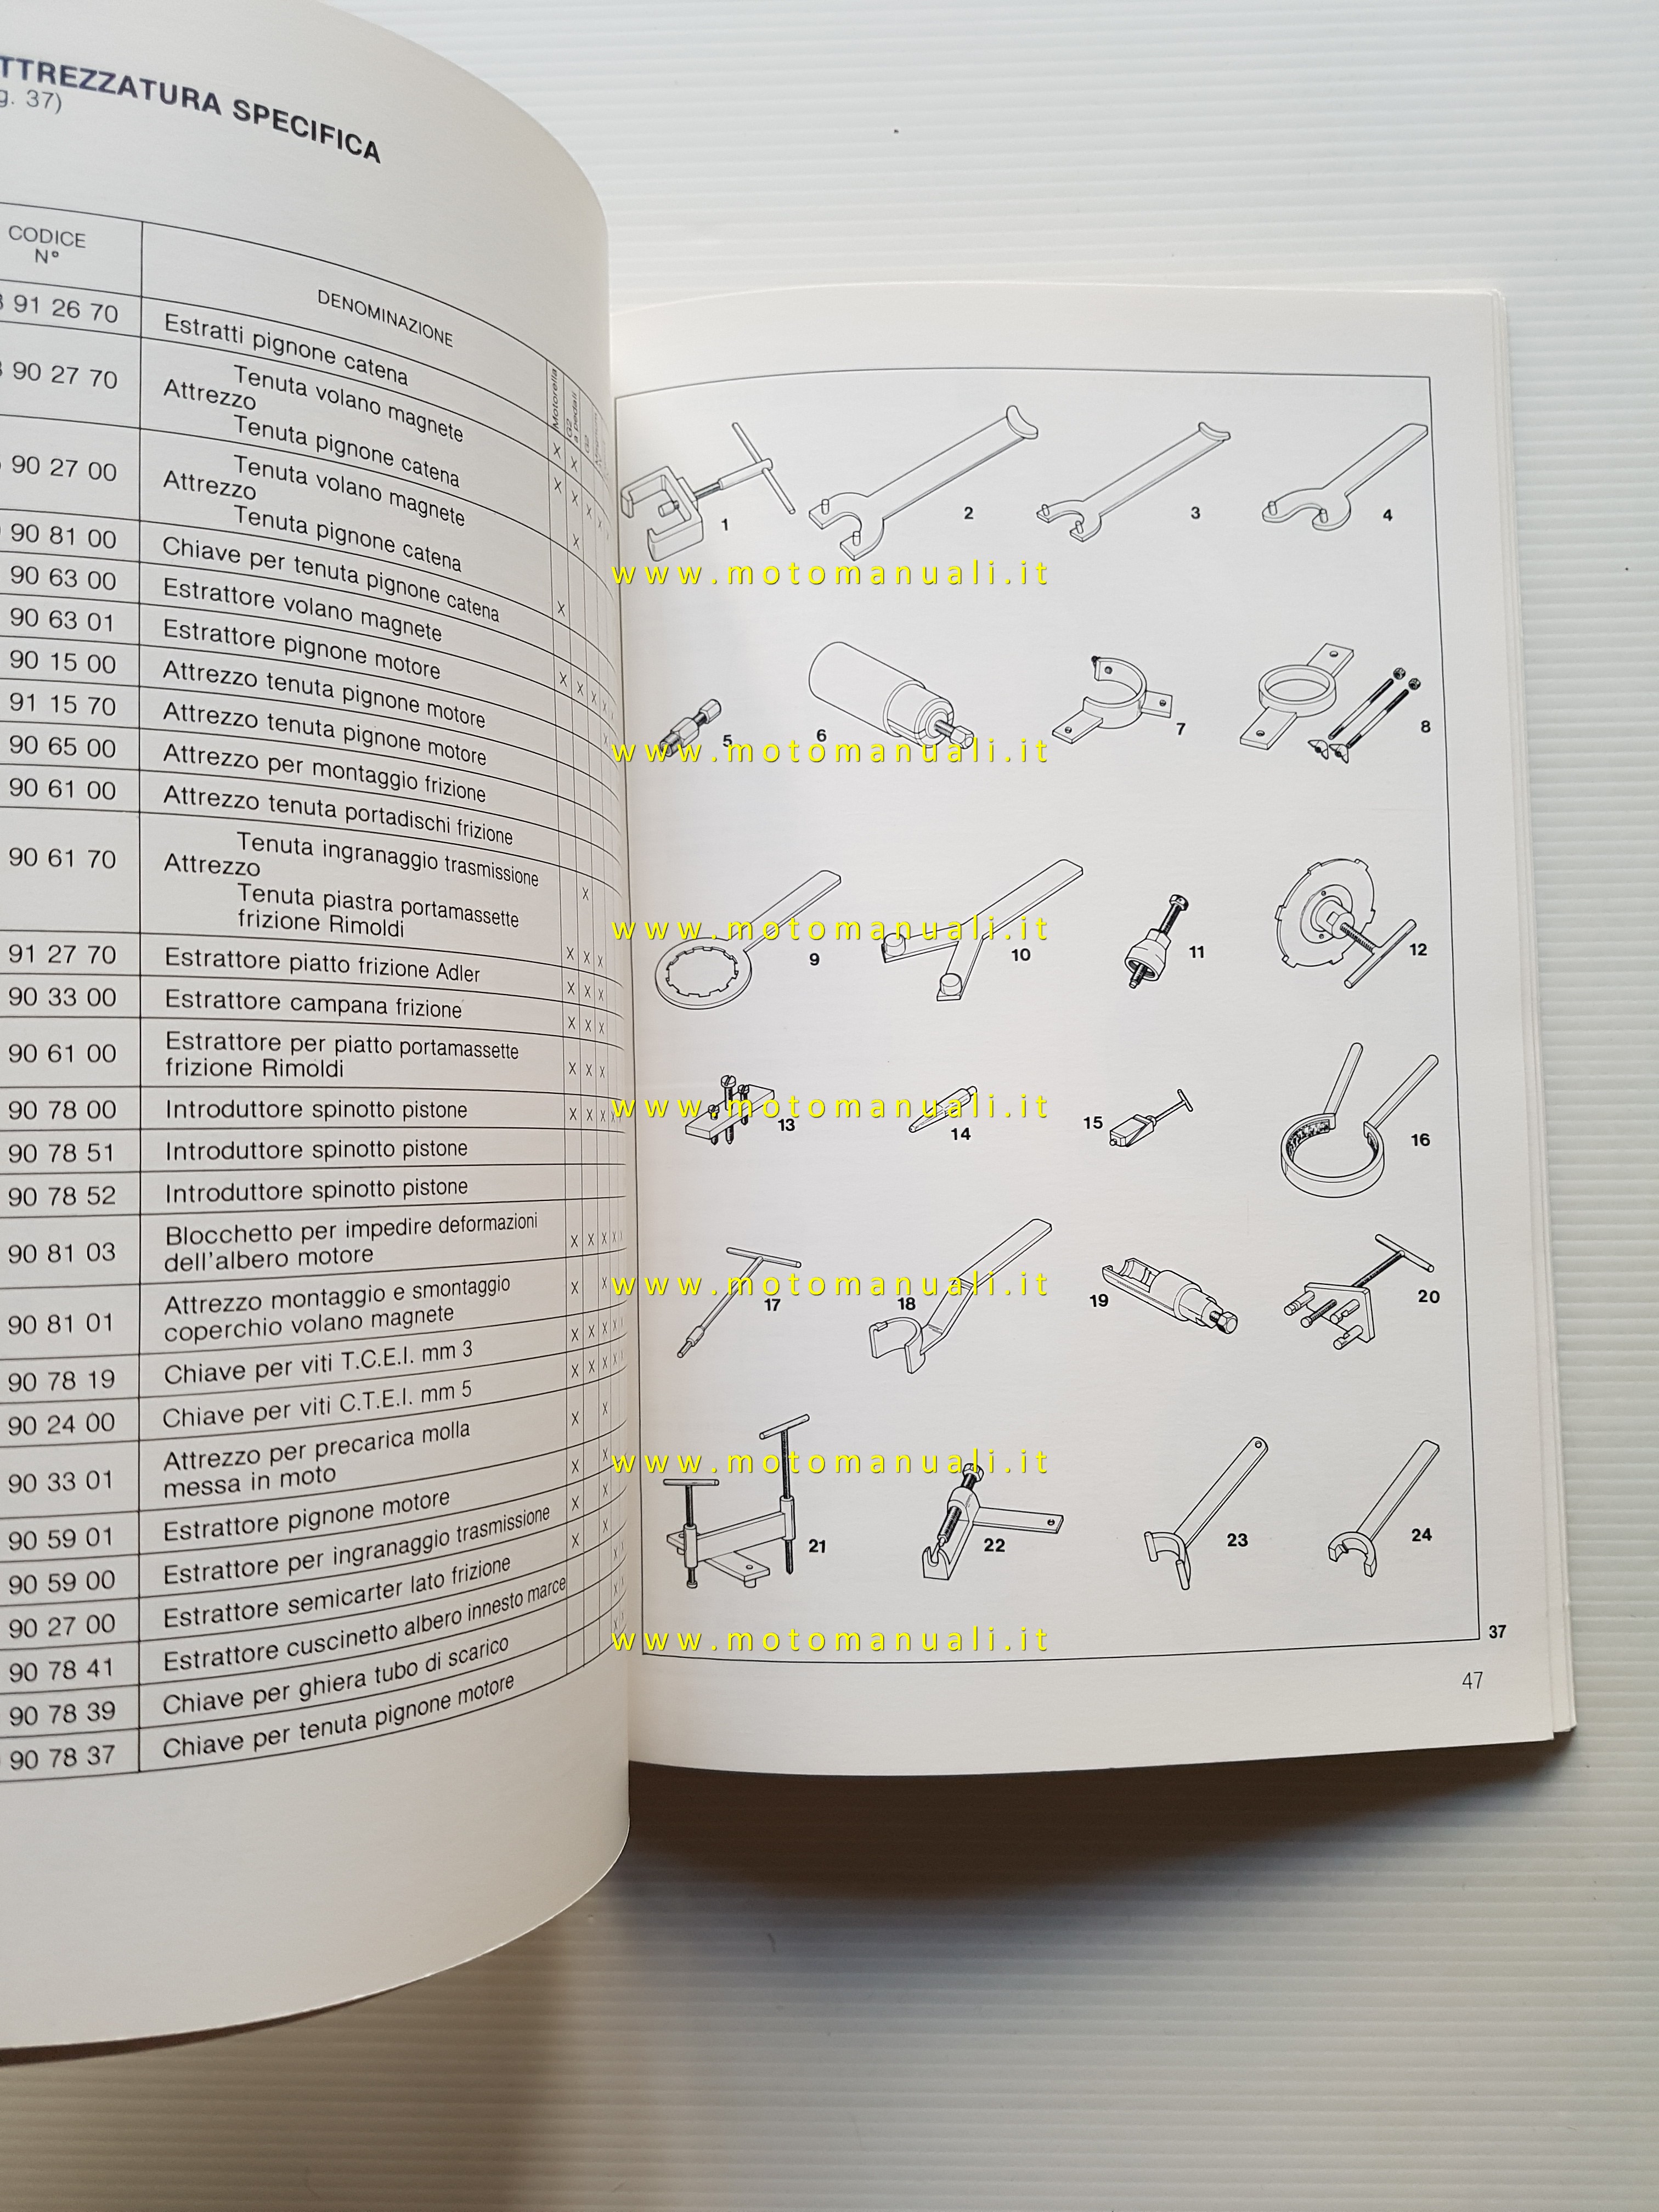 TTREZZATURA SPECIFICA
g. 37)
CODICE
N°
DENOMINAZIONE
Motorella
G2
a pedali
G2
91 26 70 Estratti pignone catena
90 27 70
Tenuta volano magnete
Attrezzo
Tenuta pignone catena
90 27 00
Tenuta volano magnete
Attrezzo
Tenuta pignone catena
90 81 00 Chiave per tenuta pignone catena
90 63 00 Estrattore volano magnete
90 63 01 Estrattore pignone motore
90 15 00 Attrezzo tenuta pignone motore
91 15 70 Attrezzo tenuta pignone motore
90 65 00 Attrezzo per montaggio frizione
90 61 00 Attrezzo tenuta portadischi frizione
90 61 70
Tenuta ingranaggio trasmissione
Attrezzo
Tenuta piastra portamassette
frizione Rimoldi
91 27 70 Estrattore piatto frizione Adler
90 33 00 Estrattore campana frizione
90 61 00 Estrattore per piatto portamassette
frizione Rimoldi
90 78 00 Introduttore spinotto pistone
90 78 51 Introduttore spinotto pistone
90 78 52 Introduttore spinotto pistone
90 81 03 Blocchetto per impedire deformazioni
dell'albero motore
90 81 01 Attrezzo montaggio e smontaggio
coperchio volano magnete
90 78 19 Chiave per viti T.C.E.I. mm 3
90 24 00 Chiave per viti C.T.E.I. mm 5
90 33 01 Attrezzo per precarica molla
messa in moto
90 59 01 Estrattore pignone motore
90 59 00 Estrattore per ingranaggio trasmissione
90 27 00 Estrattore semicarter lato frizione
90 78 41 Estrattore cuscinetto albero innesto marce
90 78 39 Chiave per ghiera tubo di scarico
90 78 37 Chiave per tenuta pignone motore
1 2 3 4
www.motomanuali.it
5 6 7 8
www.motomanuali.it
www.motomanuali.it
9 10 11 12
www.motomanuali.it
13 14 15 16
www.motomanuali.it
17 18 19 20
www.motomanuali.it
21 22 23 24
www.motomanuali.it
37
47